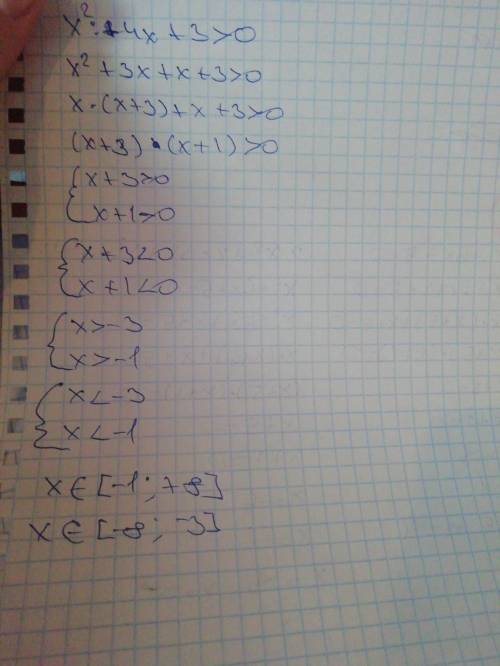 x² + 4x + 3 > 0
x² + 3x + x + 3 > 0
x · (x+3) + x + 3 > 0
(x+3) · (x+1) > 0
{ x + 3 > 0
x + 1 > 0
{ x + 3 < 0
x + 1 < 0
{ x > -3
x > -1
{ x < -3
x < -1
x ∈ [-1 ; +∞]
x ∈ [-∞ ; -3]